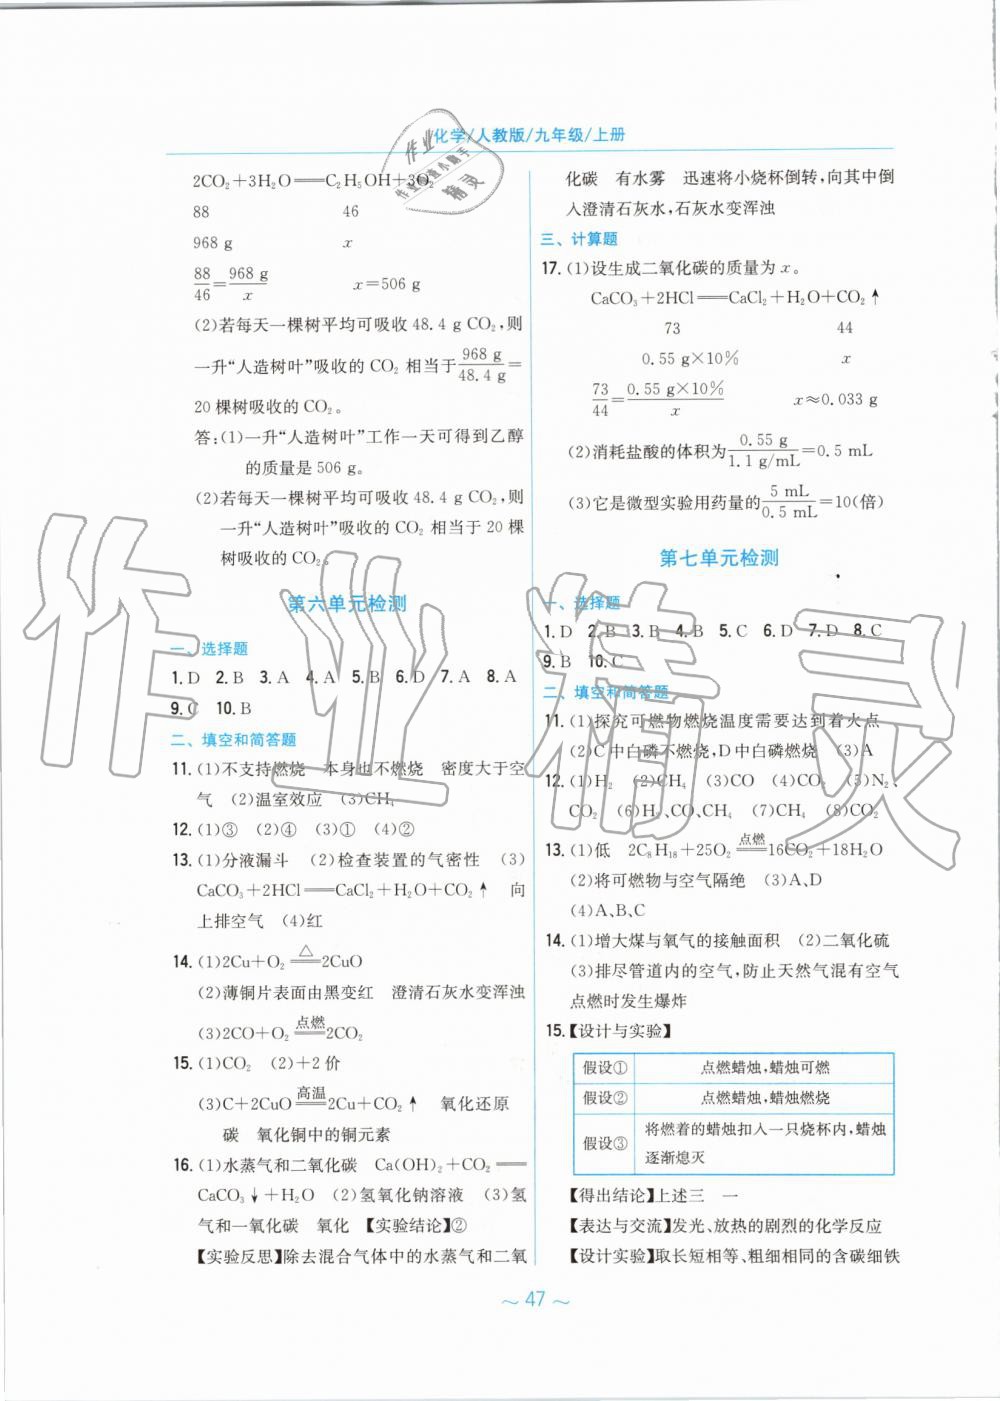 化学/人教版/九年级/上册
2CO₂+3H₂O══C₂H₅OH+3O₂
88 46
968 g x
88/46=968 g/x x=506 g
(2)若每天一棵树平均可吸收 48.4 g CO₂,则
一升“人造树叶”吸收的 CO₂ 相当于968 g/48.4 g=
20 棵树吸收的 CO₂。
答:(1)一升“人造树叶”工作一天可得到乙醇
的质量是 506 g。
(2)若每天一棵树平均可吸收 48.4 g CO₂,则
一升“人造树叶”吸收的 CO₂ 相当于 20 棵
树吸收的 CO₂。
第六单元检测
一、选择题
1. D 2. B 3. A 4. A 5. B 6. D 7. A 8. A
9. C 10. B
二、填空和简答题
11. (1)不支持燃烧 本身也不燃烧 密度大于空
气 (2)温室效应 (3)CH₄
12. (1)③ (2)④ (3)① (4)②
13. (1)分液漏斗 (2)检查装置的气密性 (3)
CaCO₃+2HCl══CaCl₂+H₂O+CO₂↑ 向
上排空气 (4)红
14. (1)2Cu+O₂══(△)2CuO
(2)薄铜片表面由黑变红 澄清石灰水变浑浊
(3)2CO+O₂══(点燃)2CO₂
15. (1)CO₂ (2)+2 价
(3)C+2CuO══(高温)2Cu+CO₂↑ 氧化还原
碳 氧化铜中的铜元素
16. (1)水蒸气和二氧化碳 Ca(OH)₂+CO₂══
CaCO₃↓+H₂O (2)氢氧化钠溶液 (3)氢
气和一氧化碳 氧化 【实验结论】②
【实验反思】除去混合气体中的水蒸气和二氧
化碳 有水雾 迅速将小烧杯倒转,向其中倒
入澄清石灰水,石灰水变浑浊
三、计算题
17. (1)设生成二氧化碳的质量为 x。
CaCO₃+2HCl══CaCl₂+H₂O+CO₂↑
73 44
0.55 g×10% x
73/44=0.55 g×10%/x x≈0.033 g
(2)消耗盐酸的体积为0.55 g/1.1 g/mL=0.5 mL
(3)它是微型实验用药量的5 mL/0.5 mL=10(倍)
第七单元检测
一、选择题
1. D 2. B 3. B 4. B 5. C 6. D 7. D 8. C
9. B 10. C
二、填空和简答题
11. (1)探究可燃物燃烧温度需要达到着火点
(2)C 中白磷不燃烧,D 中白磷燃烧 (3)A
12. (1)H₂ (2)CH₄ (3)CO (4)CO₂ (5)N₂、
CO₂ (6)H₂、CO、CH₄ (7)CH₄ (8)CO₂
13. (1)低 2C₈H₁₈+25O₂══(点燃)16CO₂+18H₂O
(2)将可燃物与空气隔绝 (3)A、D
(4)A、B、C
14. (1)增大煤与氧气的接触面积 (2)二氧化硫
(3)排尽管道内的空气,防止天然气混有空气
点燃时发生爆炸
15. 【设计与实验】
假设① 点燃蜡烛,蜡烛可燃
假设② 点燃蜡烛,蜡烛燃烧
假设③ 将燃着的蜡烛扣入一只烧杯内,蜡烛
逐渐熄灭
【得出结论】上述三 一
【表达与交流】发光、放热的剧烈的化学反应
【设计实验】取长短相等、粗细相同的含碳细铁
~ 47 ~
作业精灵